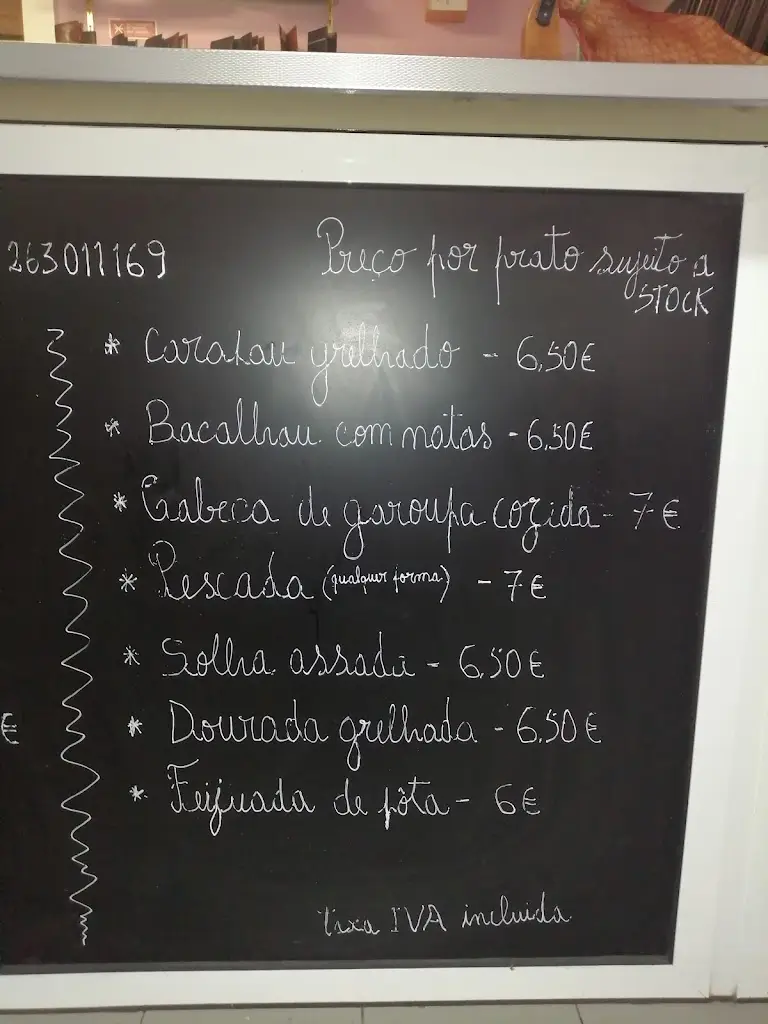 263011169
Preço por prato sujeito a
STOCK
* Carapau grelhado - 6,50€
* Bacalhau com natas - 6,50€
* Cabeca de garoupa cozida - 7€
* Pescada (qualquer forma) - 7€
* Solha assada - 6,50€
* Dourada grelhada - 6,50€
€
* Feijuada de pôta - 6€
taxa IVA incluida